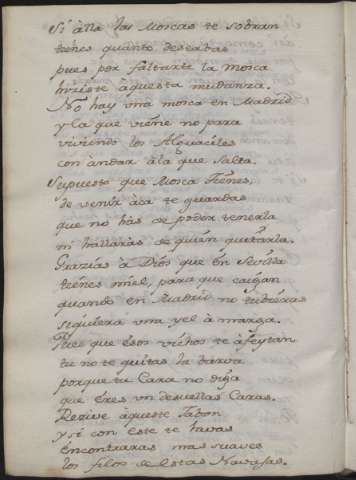 Si álla las Moscas te sobran
tienes quanto deseabas
pues por faltarte la mosca
hiziste áquesta mudanza.
No hay una mosca en Madrid
y la que viene no para
viviendo los Alguaciles
con ándar ála que salta.
Supuesto que Mosca tienes,
de venir ácá te guardas
que no hás de poder tenerla
ni hallaras de quien quitarla.
Grazias á Dios que en Sevilla
tienes miel, para que caigan
quando en Madrid no tubieras
siquiera una yel ámarga.
Dize que ésos vichos te áfeytan
tu no te quitas la barva
porque tu Cara no diga
que éres un desuella Caras.
Rezive áqueste Jabon
y si con este te lavas
éncontraras mas suaves
los filos de estas Navajas.